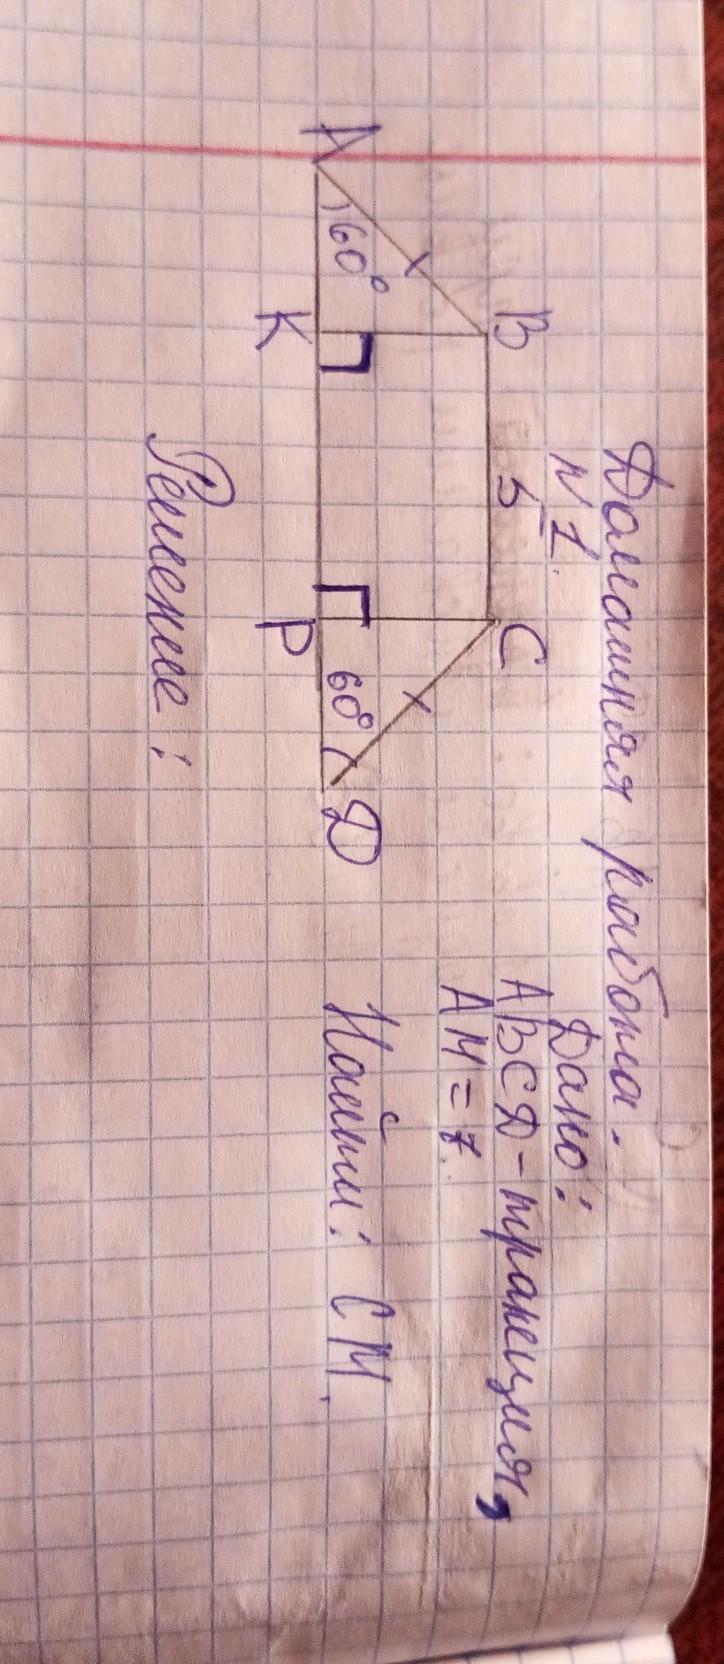 Домашняя работа.
№1.
Дано:
ABCD - трапеция,
AM = 7
Найти: CM.
B 5 C
A 60° K P 60° D
Решение: